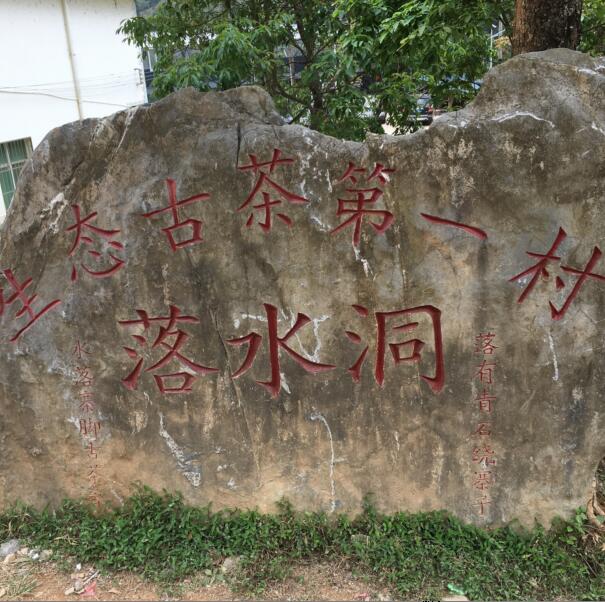 生态古茶第一村
落水洞
落有青石绕寨子
水落寨脚古茶